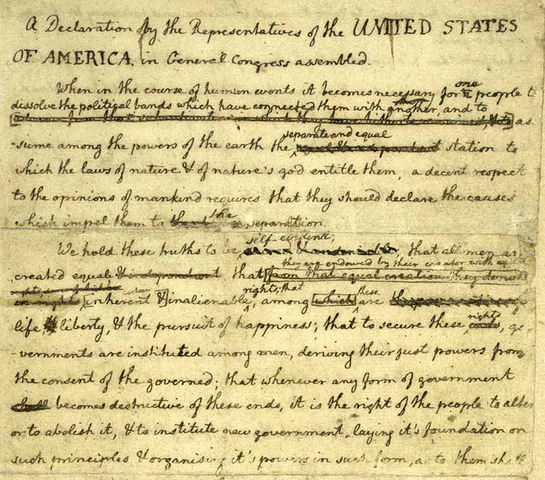 A Declaration by the Representatives of the UNITED STATES
OF AMERICA, in General Congress assembled.
When in the course of human events it becomes necessary for one people to
dissolve the political bands which have connected them with another, and to
as
separate and equal
-sume among the powers of the earth the station to
which the laws of nature & of nature's god entitle them, a decent respect
to the opinions of mankind requires that they should declare the causes
which impel them to the separation.
self-evident;
We hold these truths to be that all men are
they are endowed by their creator with
created equal & independent that from that equal creation they derive
rights; that these
inherent & inalienable, among which are
life & liberty, & the pursuit of happiness; that to secure these rights, go
-vernments are instituted among men, deriving their just powers from
the consent of the governed; that whenever any form of government
shall becomes destructive of these ends, it is the right of the people to alter
or to abolish it, & to institute new government, laying it's foundation on
such principles & organising it's powers in such form, as to them